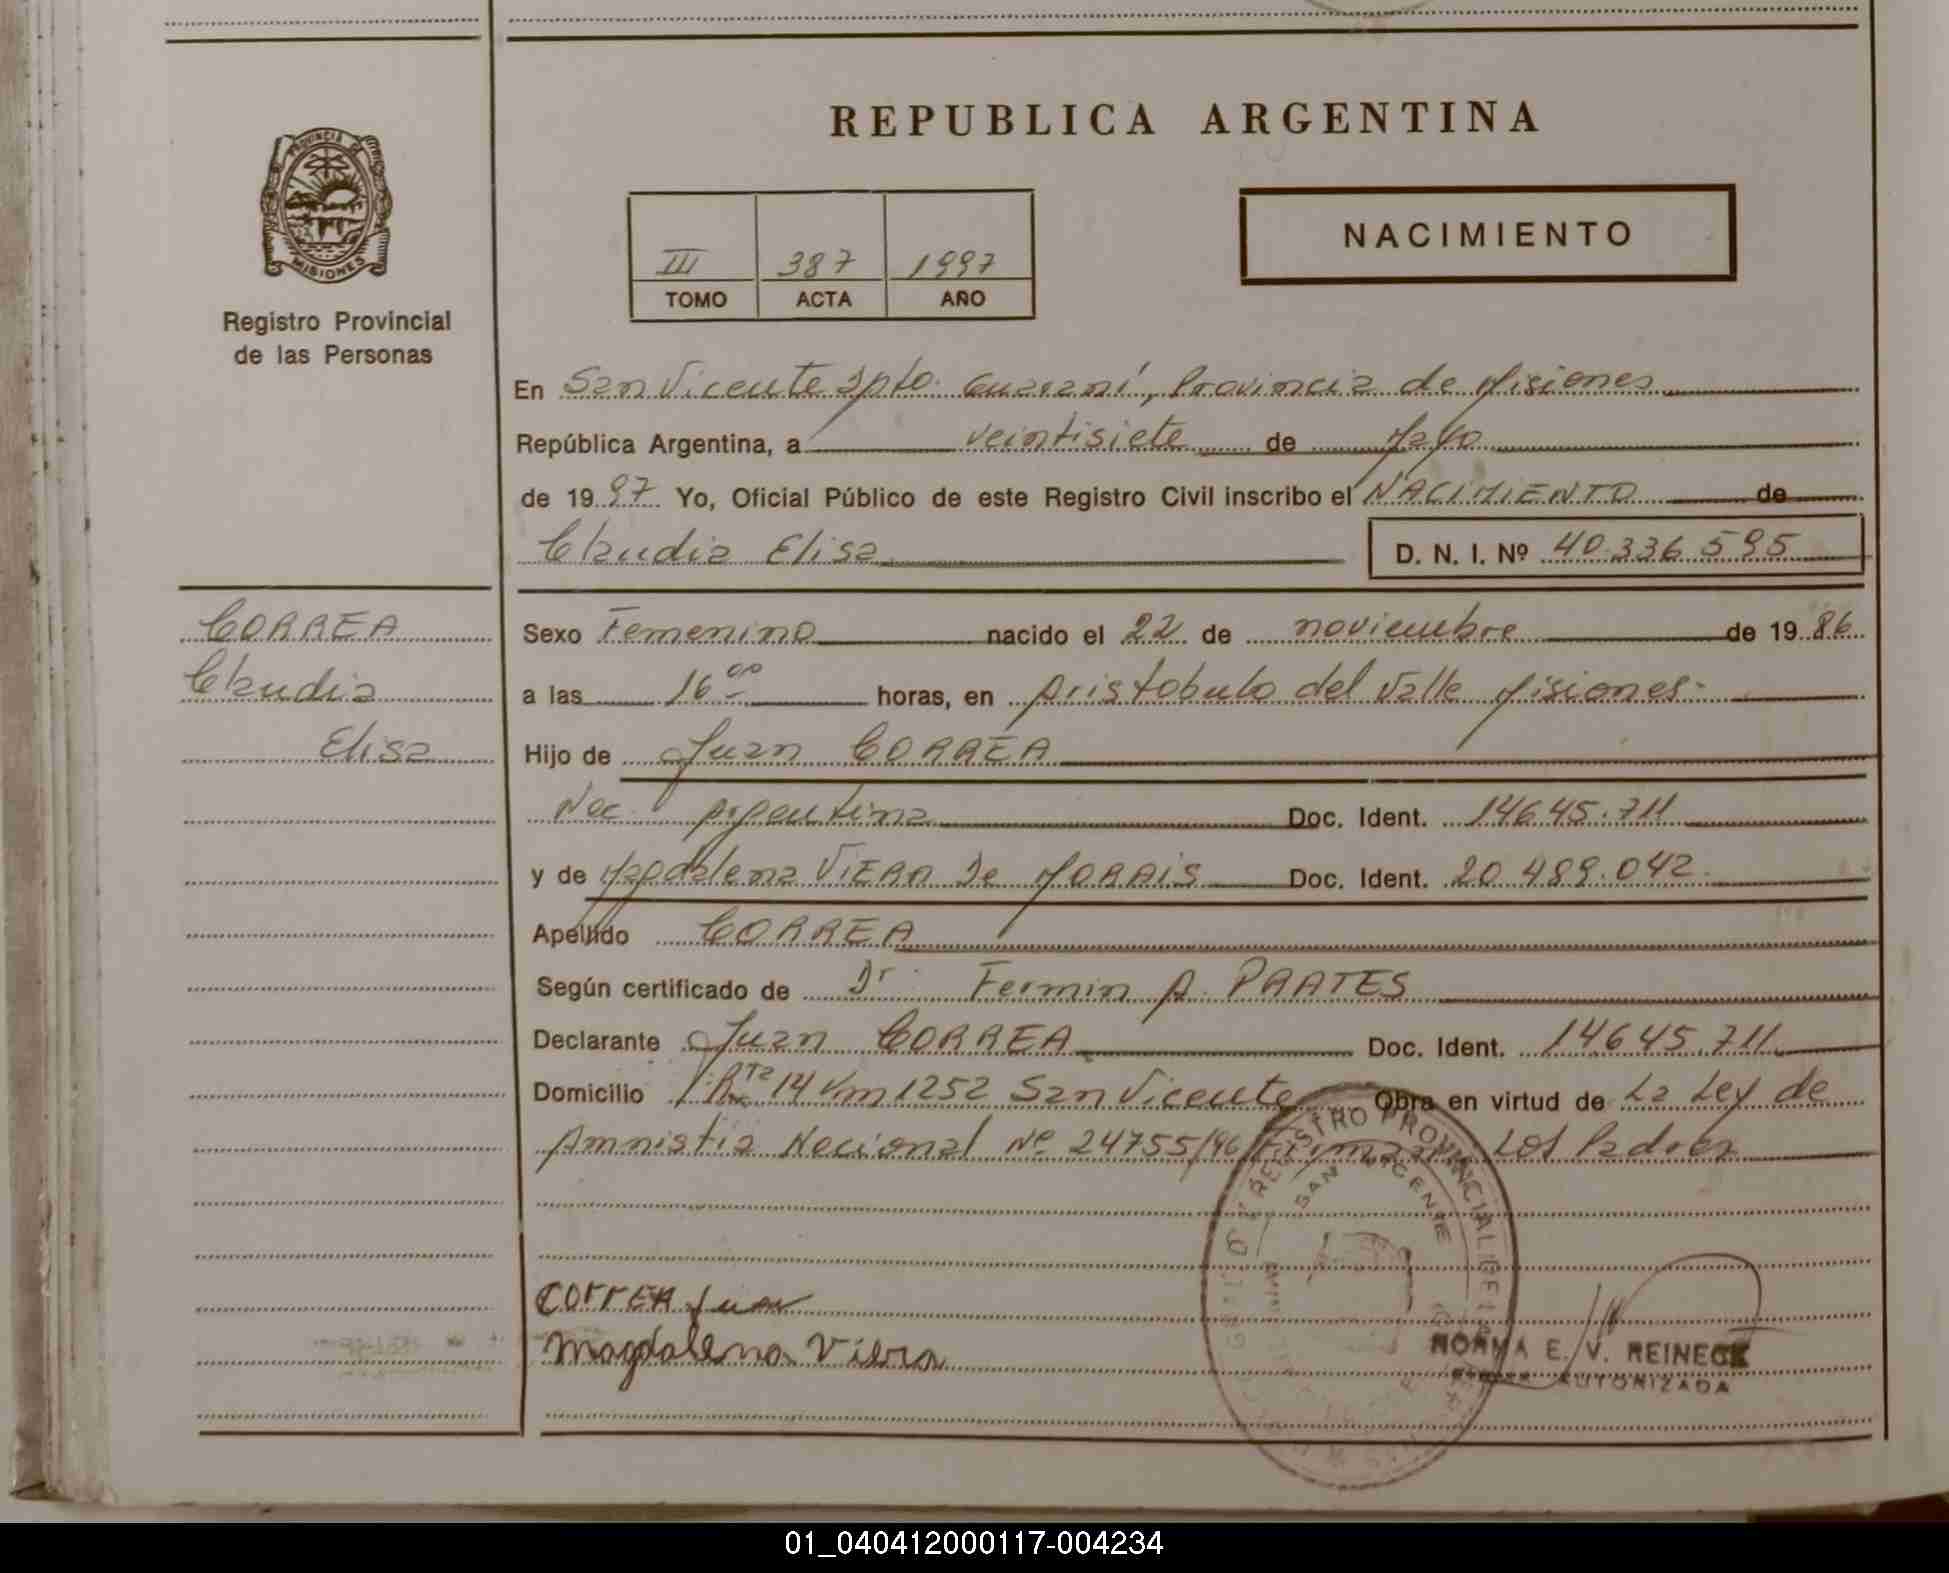 REPUBLICA ARGENTINA
PROVINCIA DE
MISIONES
Registro Provincial
de las Personas
III 387 1997
TOMO ACTA AÑO
NACIMIENTO
En San Vicente Dpto. Guaraní, Provincia de Misiones
República Argentina, a veintisiete de Mayo
de 1997 Yo, Oficial Público de este Registro Civil inscribo el NACIMIENTO de
Claudia Elisa D. N. I. Nº 40.336.595
CORREA
Claudia
Elisa
Sexo Femenino nacido el 22 de noviembre de 1986
a las 16 00 horas, en Aristobulo del Valle Misiones-
Hijo de Juan CORREA
Nac. Argentina Doc. Ident. 14645.711
y de Magdalena VIERA De MORAIS Doc. Ident. 20.489.042.
Apellido CORREA
Según certificado de Dr. Fermin A. PRATES
Declarante Juan CORREA Doc. Ident. 14645.711
Domicilio Rta 14 Km 1252 San Vicente Obra en virtud de La Ley de
Amnistia Nacional Nº 24755/96 Firman Los Padres
CORREA Juan
Magdalena Viera
REGISTRO PROVINCIAL DE
SAN VICENTE
NORMA E. V. REINECK
FIRMA AUTORIZADA
01_040412000117-004234